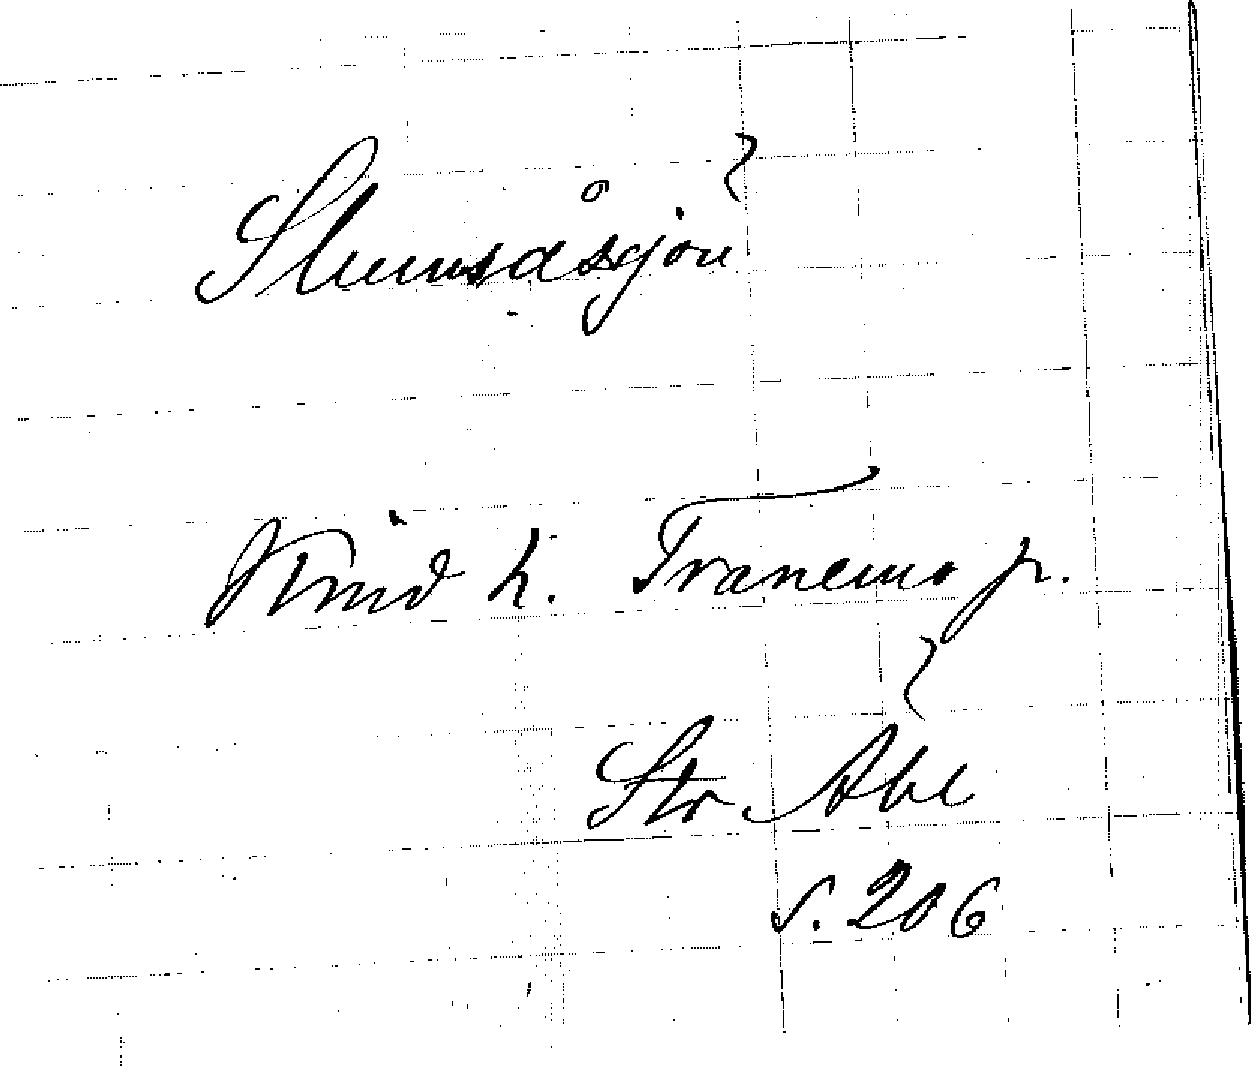 Slumsåsjön
Kind h. Tranemo sn.
Str Abl
s. 206